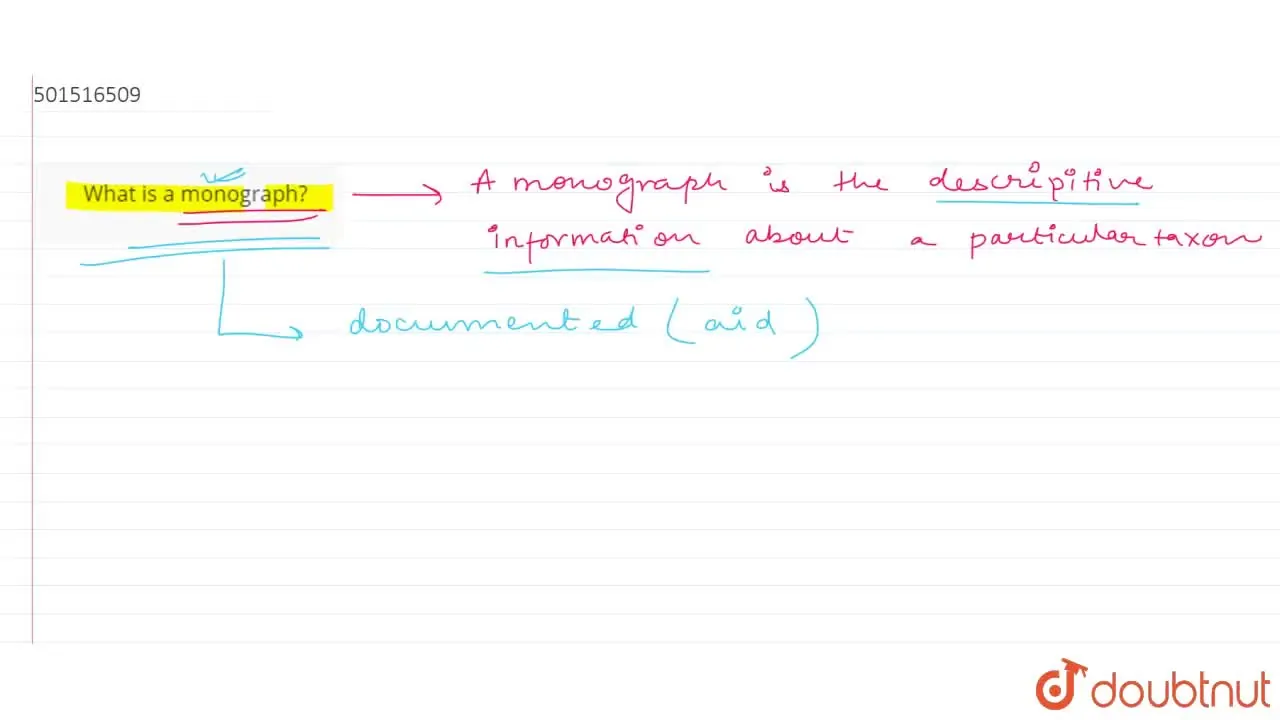 501516509
What is a monograph?
A monograph is the descripitive
information about a particular taxon
documented (aid)
doubtnut